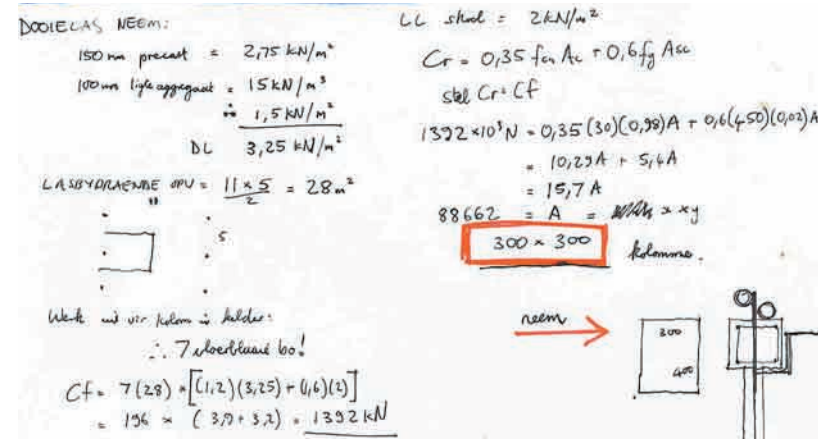 DOOIELAS NEEM:
150 mm precast = 2,75 kN/m²
100 mm ligte aggregaat = 15 kN/m³
∴ 1,5 kN/m²
DL 3,25 kN/m²
LASBYDRAENDE OPV = 11 x 5 / 2 = 28 m²
11
5
Werk uit vir kolom in kelder:
∴ 7 vloerblaaie bo!
Cf = 7(28) × [(1,2)(3,25) + (1,6)(2)]
= 196 × (3,9 + 3,2) = 1392 kN
LL skool = 2 kN/m²
Cr = 0,35 fcu Ac + 0,6 fy Asc
stel Cr = Cf
1392 ×10³ N = 0,35 (30)(0,98)A + 0,6(450)(0,02)A
= 10,29A + 5,4A
= 15,7 A
88662 = A = x x y
300 × 300 kolomme.
neem
300
400